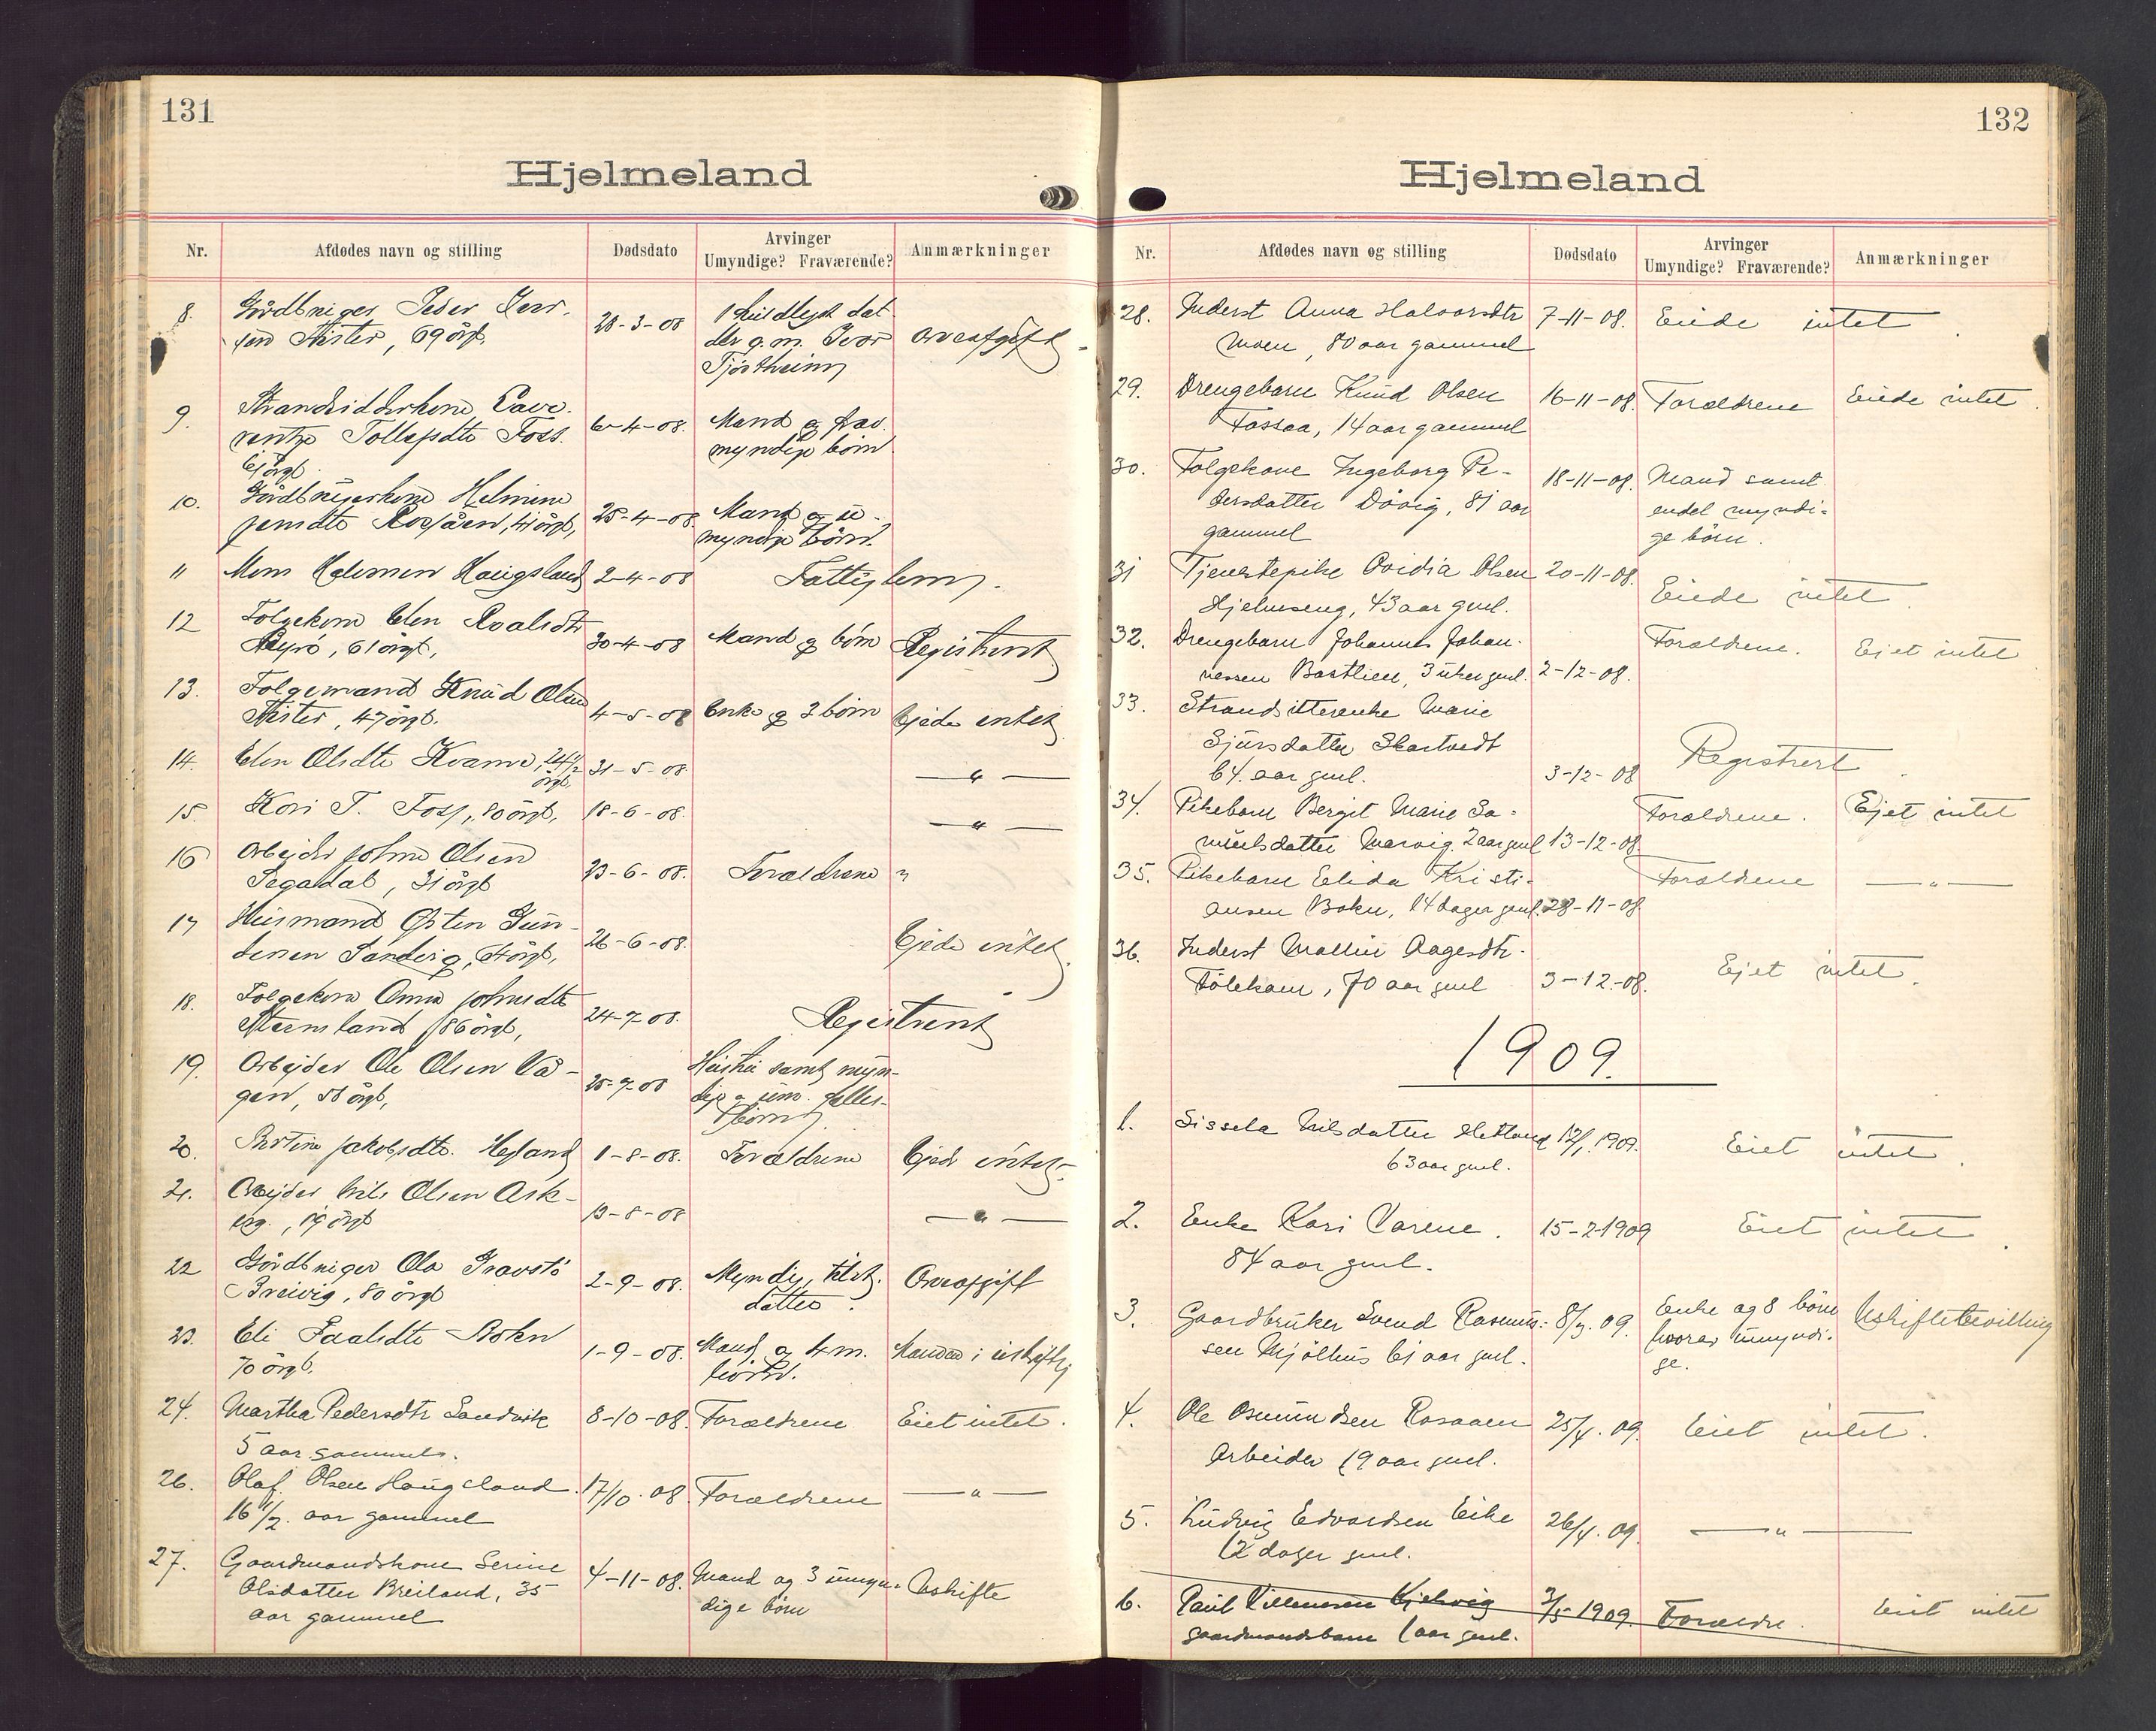 131
Hjelmeland
Nr.
Afdødes navn og stilling
Dødsdato
Arvinger
Umyndige? Fraværende?
Anmærkninger
8. Gårdbruger Peder Iver-
sen 69 årg.
28-3-08
datter g.m. Iver
Tjøstheim
Arveafgift
9.
Tollefsdtr Foss
6-4-08.
Mand og
myndige børn
10. Gårdbrugerkone Helmine
41 årg,
25-4-08.
Mand og u-
myndige børn.
11 Haugsland
2-4-08
Fattiglem.
12 Følgekone Elen Roalsdtr
61 årg,
30-4-08
Mand og børn
Registrert
13. Følgemand Knud Olsen
47 årg.
4-5-08
Enke og 3 børn
Ejede intet
14. Elen Olsdtr Kvame, 24 1/2
årg,
31-5-08.
— " —
15. Kari T. Foss, 80 årg,
18-6-08.
— " —
16 Arbejder Johne Olsen
Segadal, 31 årg
23-6-08.
Forældrene
"
17 Husmand Østen Gun-
dersen Sandvig,
26-6-08.
Ejede intet.
18. Følgekone Anna Johnsdtr
86 årg,
24-7-08.
Registrert
19. Arbejder Ole Olsen Vå-
gen, 58 årg,
25-7-08
Hustru samt myn-
dige og um. fælles-
børn
20. Jakobsdtr.
1-8-08.
Forældrene
Ejede intet.
21. Arbejder Nils Olsen Ask-
vig, 19 årg
13-8-08
— " —
22 Gårdbruger Ola
Breivig, 80 årg
2-9-08.
Myndig
datter.
Arveafgift
23. Eli Bokn
70 årg.
1-9-08.
Mand og 4 m.
børn.
Manden i uskifte
24. Martha Pedersdtr Sandvik
5 aar gammel.
8-10-08.
Forældrene
Eiet intet.
26. Olaf Olsen Haugsland.
16 1/2. aar gammel
17/10. 08.
Forældrene
— " —
27. Gaardmandskone Serine
Olsdatter Breiland, 35
aar gammel
4-11-08.
Mand og 3 umyn-
dige børn
Uskifte
132
Hjelmeland
Nr.
Afdødes navn og stilling
Dødsdato
Arvinger
Umyndige? Fraværende?
Anmærkninger
28. Inderst Anna Halvorsdtr
Moen, 80 aar gammel
7-11-08.
Eiede intet.
29. Drengebarn Knud Olsen
Fossaa, 14 aar gammel
16-11-08.
Forældrene
Eiede intet.
30. Følgekone Ingeborg Pe-
dersdatter Døvig, 81 aar
gammel
18-11-08.
Mand samt
endel myndi-
ge børn.
31 Tjenestepike Ovidia Olsen
Hjelmseng, 43 aar gml.
20-11-08.
Eiede intet.
32. Drengebarn Johannes Johan-
nessen Bastlien, 3 uker gml.
2-12-08.
Forældrene.
Eiet intet
33. Strandsitterenke Marie
Sjursdatter Skartvedt
64. aar gml.
3-12-08
Registrert.
34. Pikebarn Bergit Marie Sa-
muelsdatter Marvig. 2 aar gml
13-12-08.
Forældrene.
Ejet intet
35. Pikebarn Elida Kristi-
ansen Bokn, 14 dager gml.
28-11-08.
Forældrene
— " —
36. Inderst Mallin Aagesdtr.
70 aar gml
3-12-08.
Ejet intet.
1909.
1. Sissela Nilsdatter Hetland
63 aar gml.
12/1. 1909.
Eiet intet.
2. Enke Kari Varene.
84 aar gml.
15-2-1909
Eiet intet.
3. Gaardbruker Svend Rasmus-
sen Mjølhus 61 aar gml.
8/3. 09.
Enke og 8 børn
hvorav umyndi-
ge.
Uskiftetbevilling
4. Ole Osmundsen Rosaaen
Arbeider 19 aar gml.
25/4. 09.
Eiet intet.
5. Ludvig Edvardsen Eike
12 dager gml.
26/4. 09.
— " —
6. Paul Villumsen Kjelvig
gaardmandsbarn 1 aar gml.
3/5-1909.
Forældre.
Eiet intet